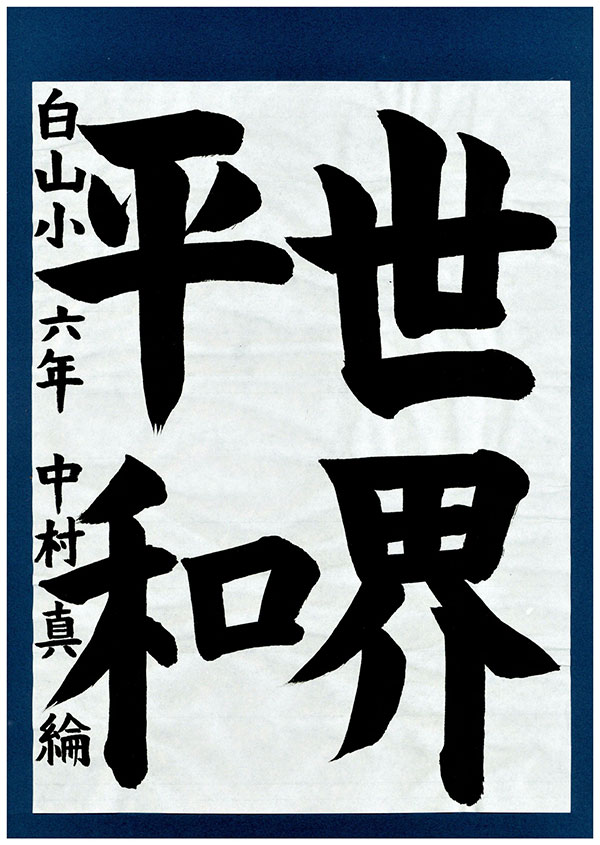 世界
平和
白山小 六年 中村真綸